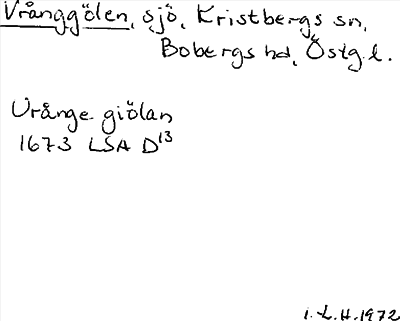 Vrånggölen, sjö, Kristbergs sn,
Bobergs hd, Östg. l.
Urånge giölan
1673 LSA D13
I. L. H. 1972